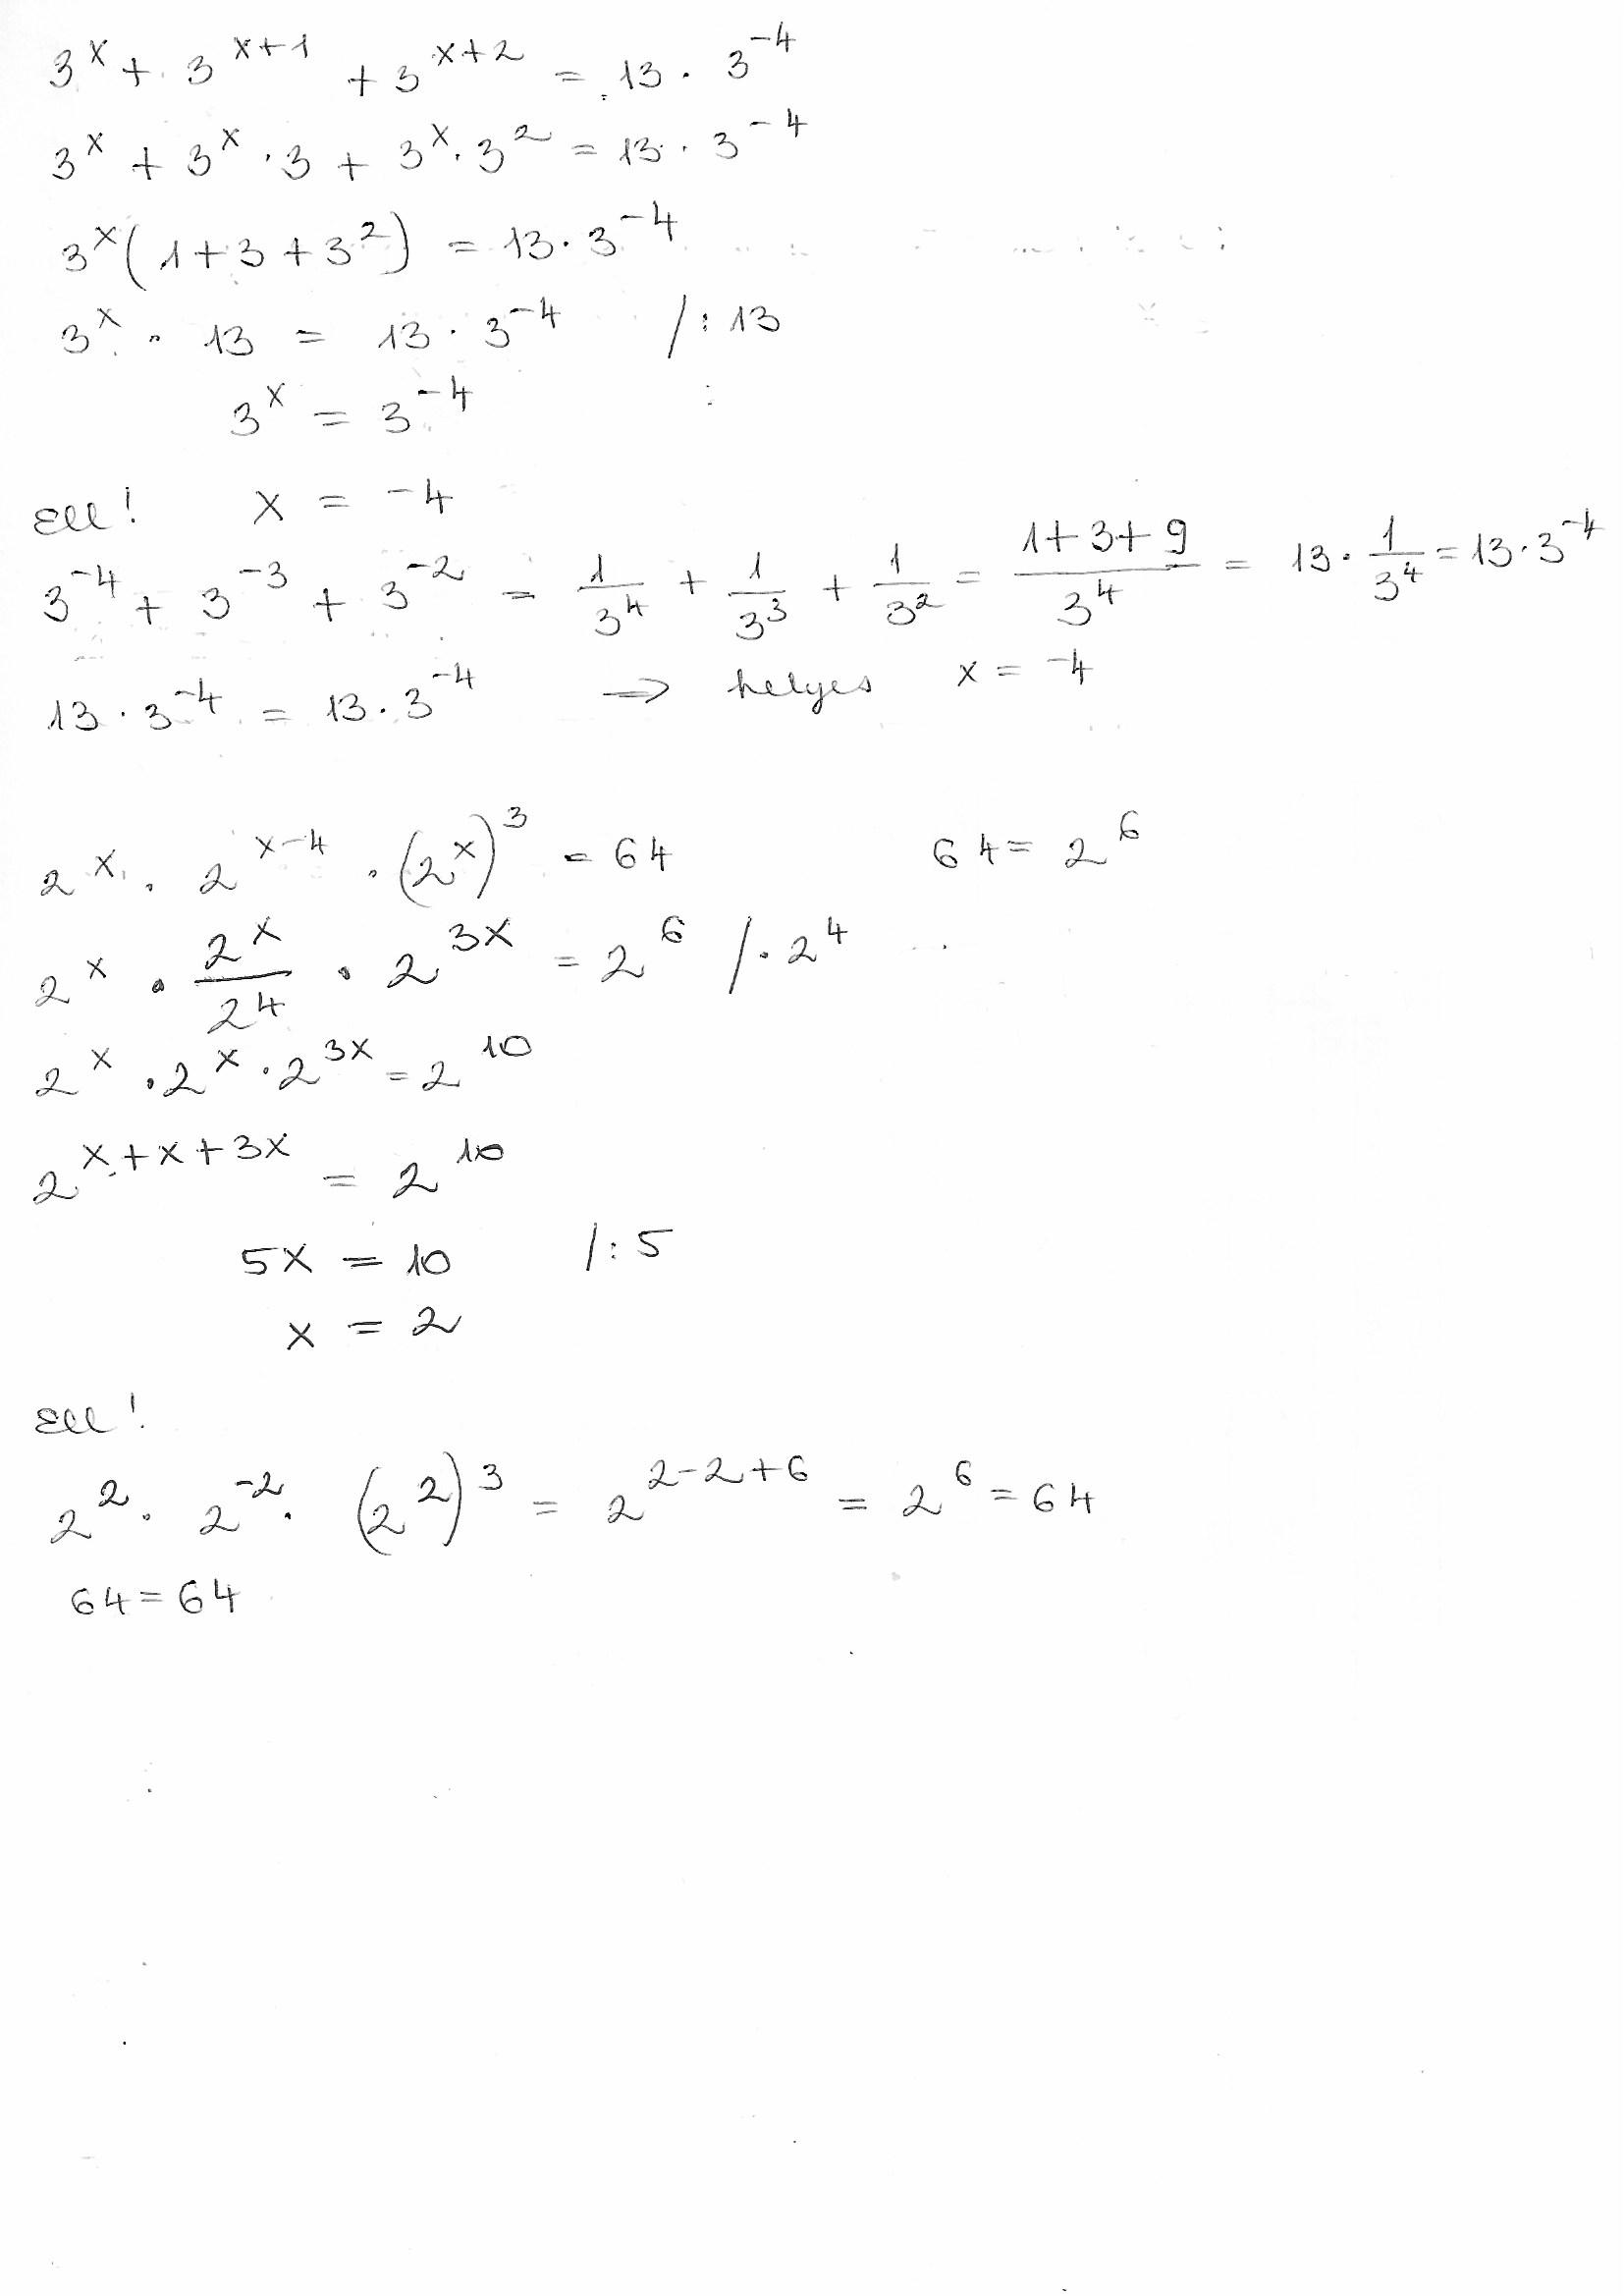 3^x + 3^{x+1} + 3^{x+2} = 13 · 3^{-4}
3^x + 3^x · 3 + 3^x · 3^2 = 13 · 3^{-4}
3^x (1 + 3 + 3^2) = 13 · 3^{-4}
3^x · 13 = 13 · 3^{-4} /: 13
3^x = 3^{-4}
Ell! x = -4
3^{-4} + 3^{-3} + 3^{-2} = \frac{1}{3^4} + \frac{1}{3^3} + \frac{1}{3^2} = \frac{1+3+9}{3^4} = 13 · \frac{1}{3^4} = 13 · 3^{-4}
13 · 3^{-4} = 13 · 3^{-4} ⇒ helyes x = -4
2^x · 2^{x-4} · (2^x)^3 = 64 64 = 2^6
2^x · \frac{2^x}{2^4} · 2^{3x} = 2^6 /· 2^4
2^x · 2^x · 2^{3x} = 2^{10}
2^{x+x+3x} = 2^{10}
5x = 10 /: 5
x = 2
Ell!
2^2 · 2^{-2} · (2^2)^3 = 2^{2-2+6} = 2^6 = 64
64 = 64